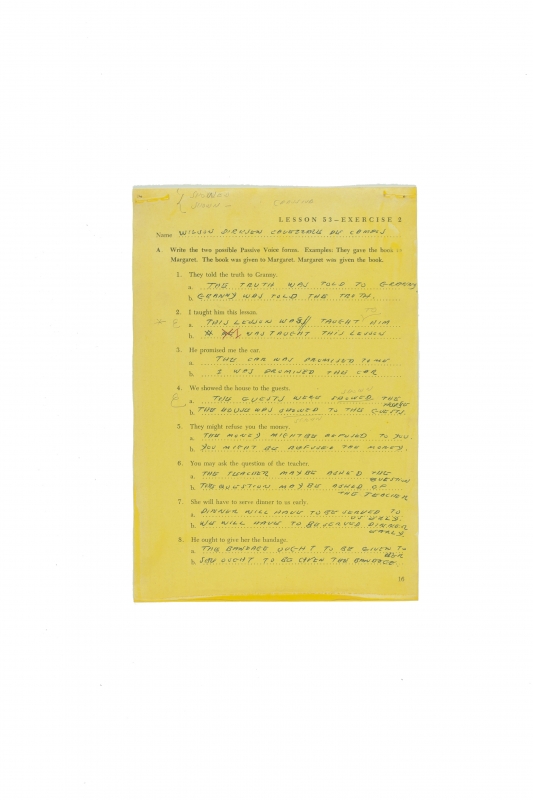 LESSON 33—EXERCISE 2
Name WILSON DICKSON CAVEZZALE DU CAMPOS
A Write the two possible Passive Voice forms. Examples: They gave the book to
Margaret. The book was given to Margaret. Margaret was given the book.
1. They told the truth to Granny.
a. THE TRUTH WAS TOLD TO GRANNY
b. GRANNY WAS TOLD THE TRUTH.
2. I taught him this lesson.
a. THIS LESSON WAS TAUGHT HIM
b. WAS TAUGHT THIS LESSON
3. He promised me the car.
a. THE CAR WAS PROMISED TO ME
b. I WAS PROMISED THE CAR
4. We showed the house to the guests.
a. THE GUESTS WERE SHOWED THE
HOUSE
b. THE HOUSE WAS SHOWED TO THE GUESTS.
5. They might refuse you the money.
a. THE MONEY MIGHT BE REFUSED TO YOU.
b. YOU MIGHT BE REFUSED THE MONEY.
6. You may ask the question of the teacher.
a. THE TEACHER MAY BE ASKED THE
QUESTION
b. THE QUESTION MAY BE ASKED OF
THE TEACHER
7. She will have to serve dinner to us early.
a. DINNER WILL HAVE TO BE SERVED TO
US ERLY.
b. WE WILL HAVE TO BE SERVED DINNER
ERLY.
8. He ought to give her the bandage.
a. THE BANDAGE OUGHT TO BE GIVEN TO
HER
b. SHE OUGHT TO BE GIVEN THE BANDAGE.